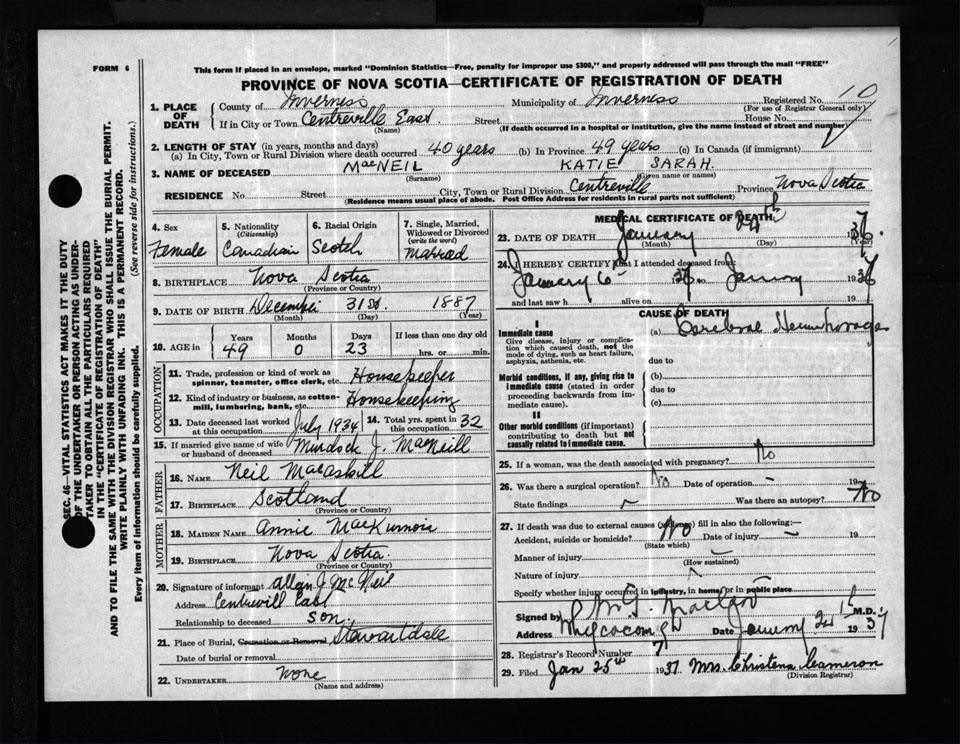 FORM 6
This form if placed in an envelope, marked "Dominion Statistics—Free, penalty for improper use $300," and properly addressed will pass through the mail "FREE"
PROVINCE OF NOVA SCOTIA—CERTIFICATE OF REGISTRATION OF DEATH
1. PLACE OF DEATH { County of Inverness Municipality of Inverness Registered No. 10
(For use of Registrar General only)
If in City or Town Centreville East Street House No.
(Name) (If death occurred in a hospital or institution, give the name instead of street and number)
2. LENGTH OF STAY (in years, months and days)
(a) In City, Town or Rural Division where death occurred 40 years (b) In Province 49 years (c) In Canada (if immigrant)
3. NAME OF DECEASED MacNEIL KATIE SARAH.
(Surname) (Given name or names)
RESIDENCE No. Street City, Town or Rural Division Centreville Province Nova Scotia
(Residence means usual place of abode. Post Office Address for residents in rural parts not sufficient)
4. Sex
Female
5. Nationality
(Citizenship)
Canadian
6. Racial Origin
Scotch
7. Single, Married, Widowed or Divorced
(write the word)
Married
8. BIRTHPLACE Nova Scotia
(Province or Country)
9. DATE OF BIRTH December 31st 1887
(Month) (Day) (Year)
10. AGE in { Years Months Days If less than one day old
49 0 23 hrs. or min.
OCCUPATION
11. Trade, profession or kind of work as spinner, teamster, office clerk, etc. Housekeeper
12. Kind of industry or business, as cotton-mill, lumbering, bank, etc. Housekeeping
13. Date deceased last worked at this occupation July 1934 14. Total yrs. spent in this occupation 32
15. If married give name of wife or husband of deceased Murdock J. MacNeill
FATHER
16. NAME Neil MacAskill
17. BIRTHPLACE Scotland
(Province or Country)
MOTHER
18. MAIDEN NAME Annie MacKinnon
19. BIRTHPLACE Nova Scotia.
(Province or Country)
20. Signature of informant Allan J McNeil
Address Centrevill East
Relationship to deceased son.
21. Place of Burial, Cremation or Removal Stewartdale
Date of burial or removal
22. UNDERTAKER None
(Name and address)
MEDICAL CERTIFICATE OF DEATH
23. DATE OF DEATH January 24th 1937
(Month) (Day) (Year)
24. I HEREBY CERTIFY that I attended deceased from
January 6 1937 January 1937
and last saw h alive on 19
CAUSE OF DEATH
I
Immediate cause (a) Cerebral Hemorrhage
Give disease, injury or complication which caused death, not the mode of dying, such as heart failure, asphyxia, asthenia, etc.
due to
Morbid conditions, if any, giving rise to immediate cause (stated in order proceeding backwards from immediate cause).
(b)
due to
(c)
II
Other morbid conditions (if important) contributing to death but not causally related to immediate cause.
25. If a woman, was the death associated with pregnancy? No
26. Was there a surgical operation? No Date of operation – 19
State findings – Was there an autopsy? No
27. If death was due to external causes (violence) fill in also the following:—
Accident, suicide or homicide? No Date of injury – 19
(State which)
Manner of injury –
(How sustained)
Nature of injury
Specify whether injury occurred in industry, in home, or in public place –
Signed by MacLeod M.D.
Address Whycocomagh Date January 24th 1937
28. Registrar's Record Number 7
29. Filed Jan 25th 1937 Mrs. Christena Cameron
(Division Registrar)
SEC. 46—VITAL STATISTICS ACT MAKES IT THE DUTY
OF THE UNDERTAKER OR PERSON ACTING AS UNDER-
TAKER TO OBTAIN ALL THE PARTICULARS REQUIRED
IN THE "CERTIFICATE OF REGISTRATION OF DEATH"
AND TO FILE THE SAME WITH THE DIVISION REGISTRAR WHO SHALL ISSUE THE BURIAL PERMIT.
WRITE PLAINLY WITH UNFADING INK. THIS IS A PERMANENT RECORD.
Every item of information should be carefully supplied. (See reverse side for instructions.)